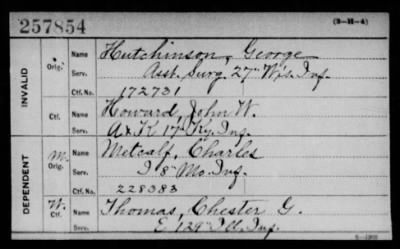 257854
(3-H-4)
INVALID
Orig. Name Hutchinson, George
Serv. Asst. Surg. 27" Wis. Inf.
Ctf.No. 172731
Ctf. Name Howard, John W.
Serv. A & K 17" Ky. Inf.
DEPENDENT
M. Orig. Name Metcalf, Charles
Serv. I 8" Mo. Inf.
Ctf.No. 228383
W. Ctf. Name Thomas, Chester G.
Serv. E 129" Ill. Inf.